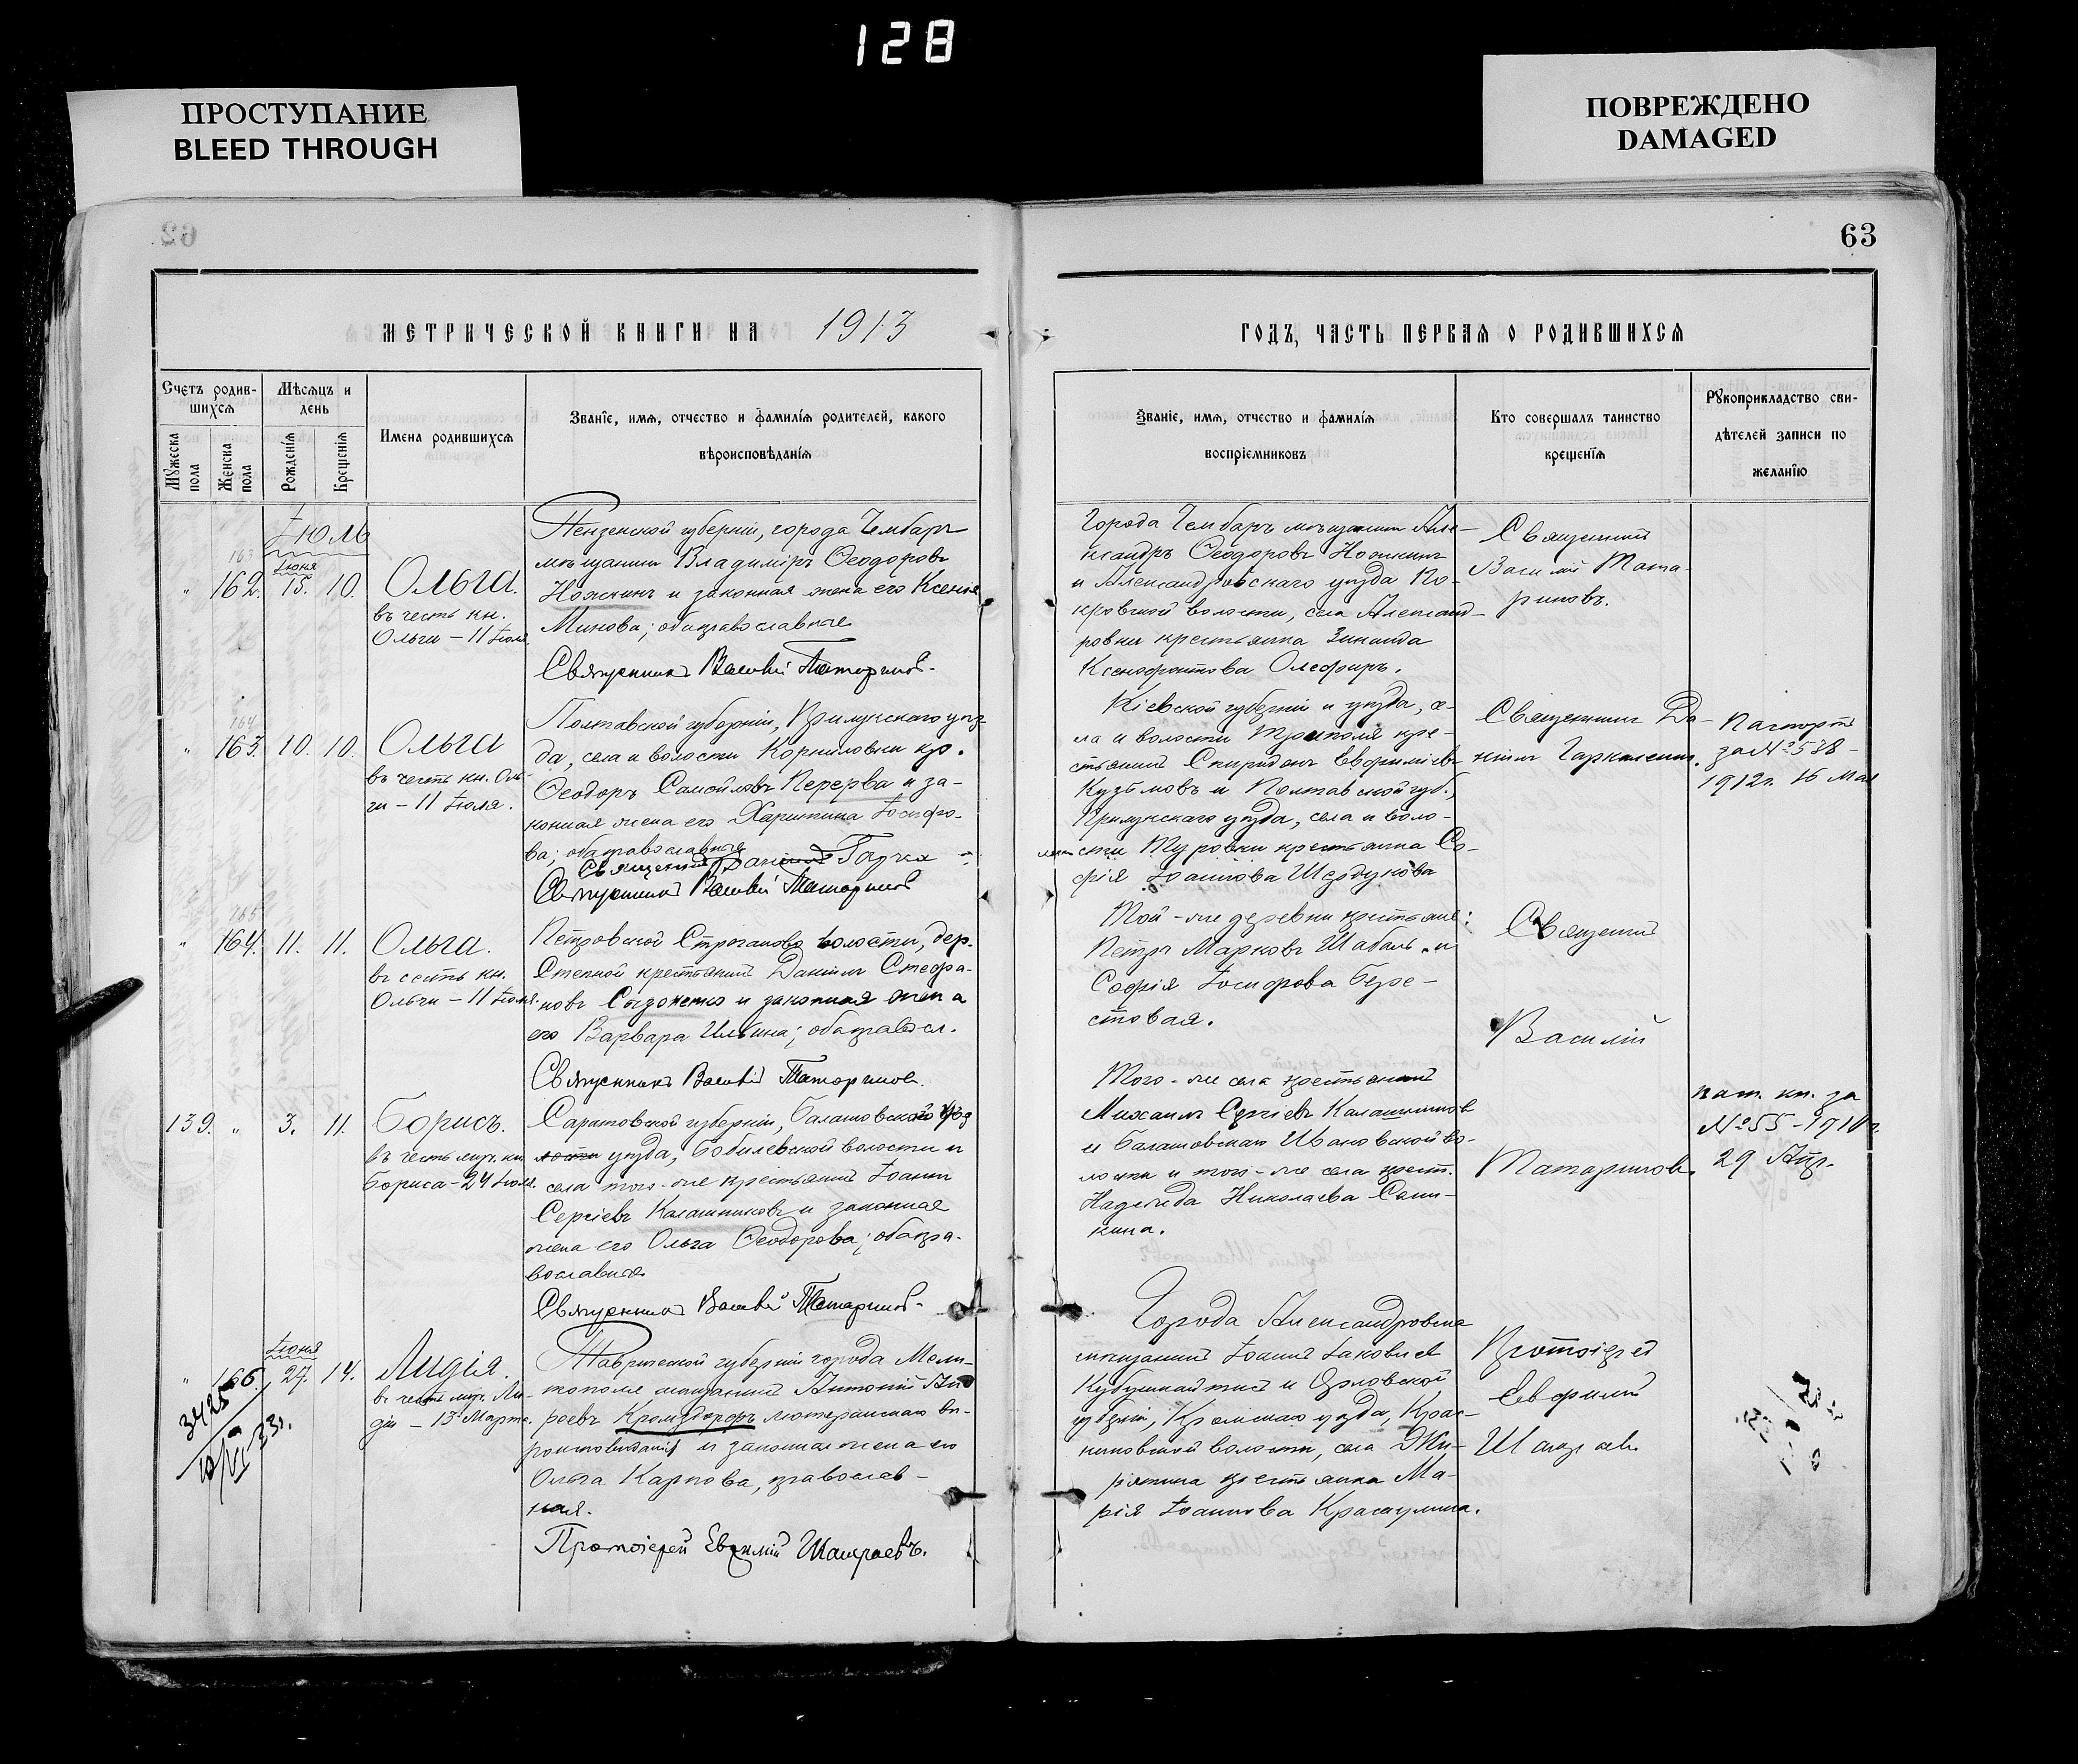 128
ПРОСТУПАНИЕ
BLEED THROUGH
ПОВРЕЖДЕНО
DAMAGED
62
63
МЕТРИЧЕСКОЙ КНИГИ НА 1913
ГОДЪ, ЧАСТЬ ПЕРВАЯ О РОДИВШИХСЯ
Счетъ родив-
шихся
Мѣсяцъ и
день
Имена родившихся
Званіе, имя, отчество и фамилія родителей, какого
вѣроисповѣданія
Мужеска
пола
Женска
пола
Рожденія
Крещенія
Званіе, имя, отчество и фамилія
воспріемниковъ
Кто совершалъ таинство
крещенія
Рукоприкладство сви-
дѣтелей записи по
желанію
Іюль
163
Іюня
" 162. 15. 10.
Ольга.
въ честь кн.
Ольги – 11 Іюля
Пензенской губерніи, города Чембаръ
мѣщанинъ Владиміръ Ѳеодоровъ
Ножкинъ и законная жена его Ксенія
Минова; оба православные
Священникъ Василій Татариновъ.
Города Чембаръ мѣщанинъ Але-
ксандръ Ѳеодоровъ Ножкинъ
и Александровскаго уѣзда По-
кровской волости, села Александ-
ровки крестьянка Зинаида
Ксенофонтова Олефиръ.
Священникъ
Василій Тата-
риновъ.
164
" 163. 10. 10.
Ольга
въ честь кн. Оль-
ги – 11 Іюля.
Полтавской губерніи, Прилукскаго уѣз-
да, села и волости Корниловки кр.
Ѳеодоръ Самойловъ Перерва и за-
конная жена его Харитина Іосифо-
ва; оба православные
Священникъ Даніилъ
Священникъ Василій Татариновъ
Кіевской губерніи и уѣзда, се-
ла и волости Триполья кре-
стьянинъ Спиридонъ Евфиміевъ
Кузьмовъ и Полтавской губ.,
Прилукскаго уѣзда, села и воло-
сти Туровки крестьянка Со-
фія Іоаннова Шердукова
Священникъ Да-
ніилъ
Паспортъ
за № 538 –
1912 г. 16 Мая
165
" 164. 11. 11.
Ольга.
въ честь кн.
Ольги – 11 Іюля.
Петровской Строгановъ волости, дер.
Степной крестьянинъ Даніилъ Стефа-
новъ и законная жена
его Варвара Ильина; оба правосл.
Священникъ Василій Татариновъ.
Той-же деревни крестьяне:
Петръ Марковъ Шабаль и
Софія Іосифова Бере-
стовая.
Священникъ
Василій
Татариновъ.
139. " 3. 11.
Борисъ.
въ честь мир. кн.
Бориса – 24 Іюля.
Саратовской губерніи, Балашовскаго
уѣзда, Бобылевской волости и
села того-же крестьянинъ Іоаннъ
Сергіевъ Калашниковъ и законная
жена его Ольга Ѳеодорова; оба пра-
вославные
Священникъ Василій Татариновъ.
Того-же села крестьянинъ
Михаилъ Сергіевъ Калашниковъ
и Балашовскаго Ивановской во-
лости и того-же села крест.
Надежда Николаева
пасп. кн. за
№ 55 – 1910 г.
29 Апр.
Іюня
" 166. 27. 14.
3425
Лидія.
въ честь мир. Ли-
діи – 13 Марта.
Таврической губерніи города Мели-
тополя мѣщанинъ Антоній
Кромздорфъ лютеранскаго вѣ-
роисповѣданія и законная жена его
Ольга Карпова, православ-
ная.
Протоіерей Евфимій Шаираевъ.
Города Александровска
мѣщанинъ Іоаннъ Іаковлевъ
и Орловской
губерніи, Кромскаго уѣзда,
волости, села
крестьянка Ма-
рія Іоаннова
Протоіерей
Евфимій